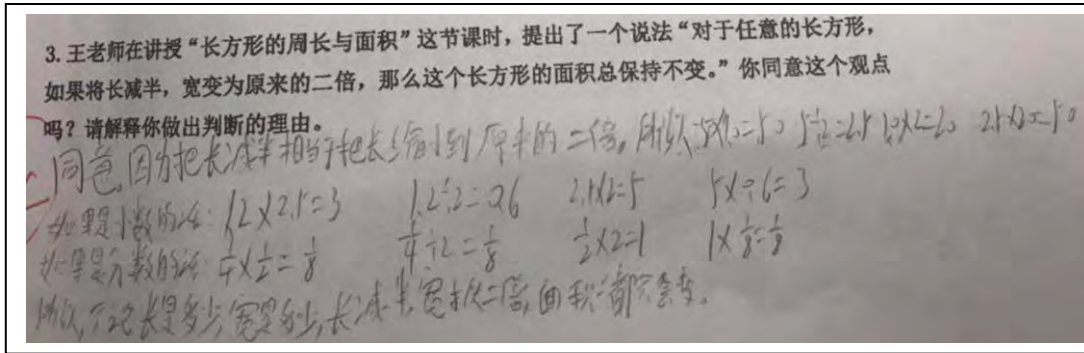 3.王老师在讲授“长方形的周长与面积”这节课时，提出了一个说法“对于任意的长方形，
如果将长减半，宽变为原来的二倍，那么这个长方形的面积总保持不变。”你同意这个观点
吗？请解释你做出判断的理由。
同意,因为把长减半相当于把长缩小到原来的二倍,所以:5×10=50 5÷2=2.5 10×2=20 2.5×20=50
如果是小数的话: 1.2×2.5=3 1.2÷2=0.6 2.5×2=5 5×0.6=3
如果是分数的话: 1/4×1/2=1/8 1/4÷2=1/8 1/2×2=1 1×1/8=1/8
所以,不论长是多少,宽是多少,长减半,宽二倍,面积都不会变。